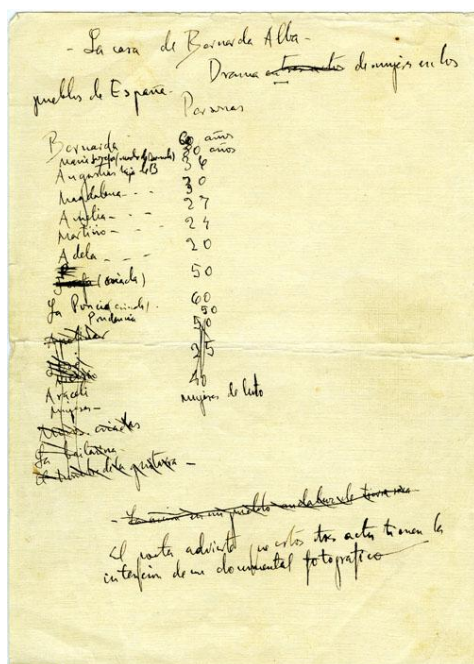 - La casa de Bernarda Alba -
Drama en tres actos de mujeres en los
pueblos de España -
Personas
Bernarda 60 años
Maria Josefa (madre de Bernarda) 80 años
Angustias hija de B 39
Magdalena - - - 30
Amelia - - - 27
Martirio - - - 24
Adela - - - 20
(criada) 50
La Poncia (criada) 60
Prudencia 50
50
25
40
Mujeres - mujeres de luto
criadas
La bailarina
El hombre de la guitarra -
La acción en un pueblo andaluz de tierra seca
El poeta advierte que estos tres actos tienen la
intención de un documental fotográfico